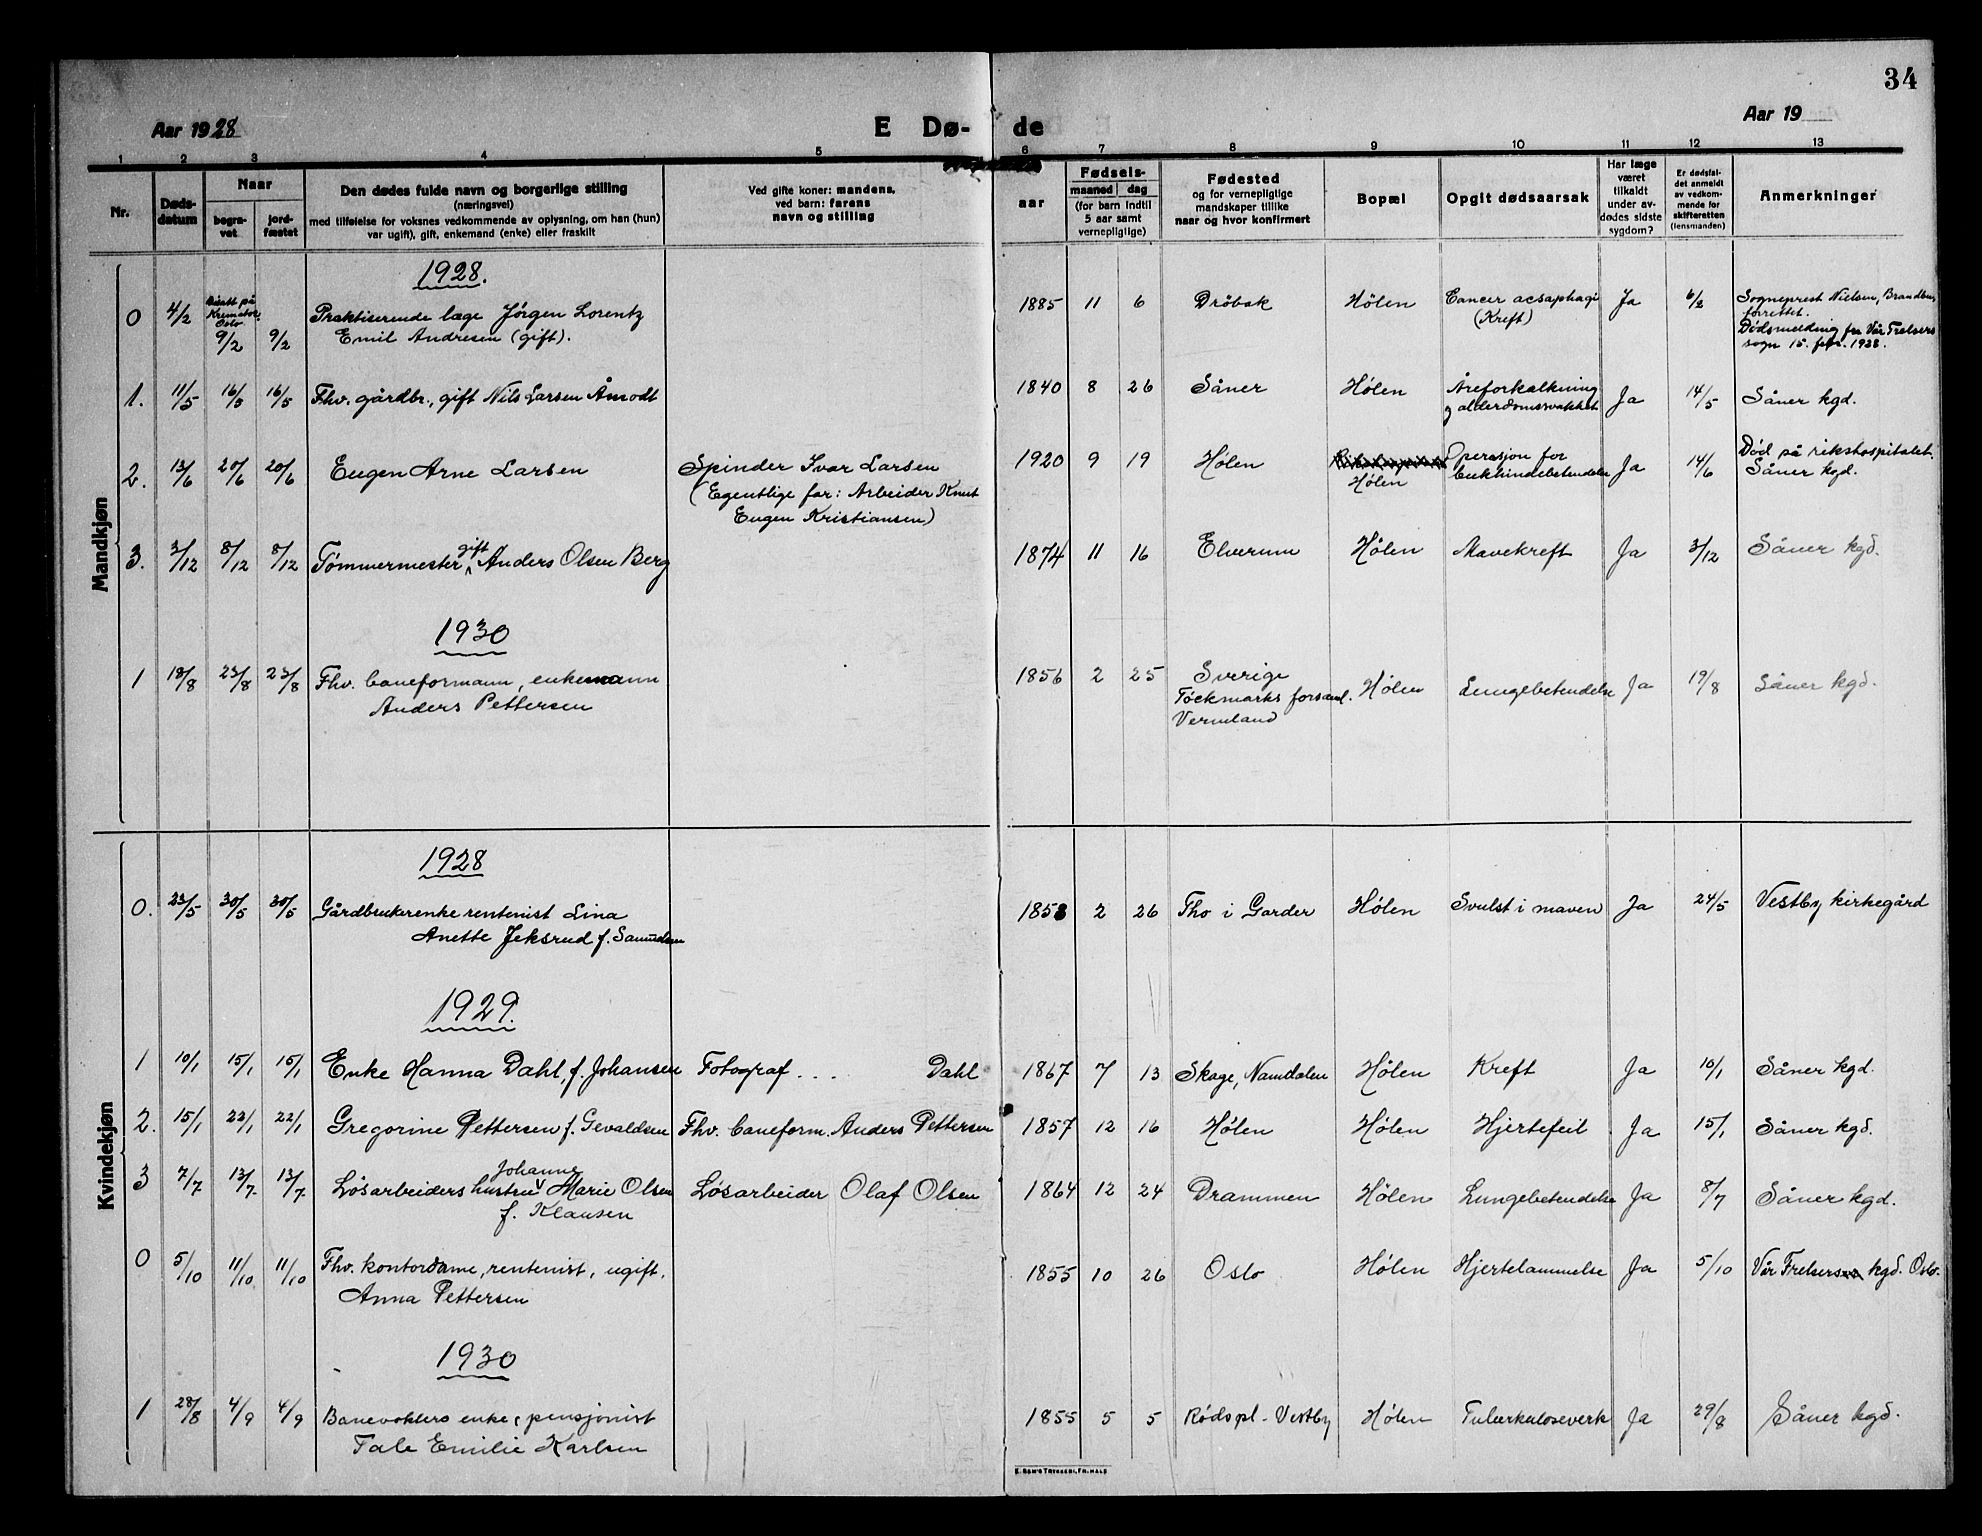 34
Aar 1928
E Dø-
de
Aar 19
1 2 3 4 5 6 7 8 9 10 11 12 13
Nr.
Døds-
datum
Naar
begra-
vet
jord-
fæstet
Den dødes fulde navn og borgerlige stilling
(næringsvei)
med tilføielse for voksnes vedkommende av oplysning, om han (hun)
var ugift), gift, enkemand (enke) eller fraskilt
Ved gifte koner: mandens,
ved barn: farens
navn og stilling
aar
Fødsels-
maaned dag
(for barn indtil
5 aar samt
vernepligtige)
Fødested
og for vernepligtige
mandskaper tillike
naar og hvor konfirmert
Bopæl
Opgit dødsaarsak
Har læge
været
tilkaldt
under av-
dødes sidste
sygdom?
Er dødsfal-
det anmeldt
av vedkom-
mende for
skifteretten
(lensmanden)
Anmerkninger
Mandkjøn
1928.
0 4/2
Oslo
9/2 9/2
Praktiserende læge Jörgen Lorentz
Emil Andresen (gift).
1885 11 6 Dröbak Hölen Cancer acsaphagi
(Kreft)
Ja 6/2
Sogneprest Nielsen, Brandbu,
forrettet.
Dödsmelding fra Vår Frelsers
sogn 15. febr. 1928.
1. 11/5 16/5 16/5 Fhv. gårdbr., gift Nils Larsen Åmodt
1840 8 26 Såner Hölen Åreforkalkning
og alderdomssvakhet
Ja 14/5 Såner kgd.
2. 13/6 20/6 20/6 Eugen Arne Larsen
Spinder Ivar Larsen
(Egentlige far: Arbeider Knut
Eugen Kristiansen)
1920 9 19 Hölen
Hölen
Operasjon for
bukhindebetendelse
Ja 14/6
Död på rikshospitalet.
Såner kgd.
3. 3/12 8/12 8/12 Tømmermester gift Anders Olsen Berg
1874 11 16 Elverum Hölen Mavekreft Ja 3/12 Såner kgd.
1930
1 18/8 23/8 23/8 Fhv. baneformann, enkemann
Anders Pettersen
1856 2 25 Sverige
Töckmarks forsaml.
Vermland
Hölen Lungebetendelse Ja 19/8 Såner kgd.
Kvindekjøn
1928
0. 23/5 30/5 30/5 Gårdbrukerenke rentenist Lina
Anette Jeksrud f. Samuelsen
1858 2 26 Tho i Garder Hölen Svulst i maven Ja 24/5 Vestby kirkegård
1929.
1 10/1 15/1 15/1 Enke Hanna Dahl, f. Johansen Fotograf ... Dahl
1867 7 13 Skage, Namdalen Hölen Kreft Ja 10/1 Såner kgd.
2. 15/1 22/1 22/1 Gregorine Pettersen f. Gevaldsen Fhv. baneform. Anders Pettersen
1857 12 16 Hölen Hölen Hjertefeil Ja 15/1 Såner kgd.
3 7/7 13/7 13/7 Løsarbeiders hustru Johanne Marie Olsen
f. Klausen
Løsarbeider Olaf Olsen
1864 12 24 Drammen Hölen Lungebetendelse Ja 8/7 Såner kgd.
0 5/10 11/10 11/10 Fhv. kontordame, rentenist, ugift,
Anna Pettersen
1855 10 26 Oslo Hölen Hjertelammelse Ja 5/10 Vår Frelsers kgd. Oslo.
1930
1 28/8 4/9 4/9 Banevokters enke, pensjonist
Tale Emilie Karlsen
1855 5 5 Rödspl - Vestby Hölen Tuberkuloseverk Ja 29/8 Såner kgd.
E. SEM'S TRYKKERI, FR.HALD